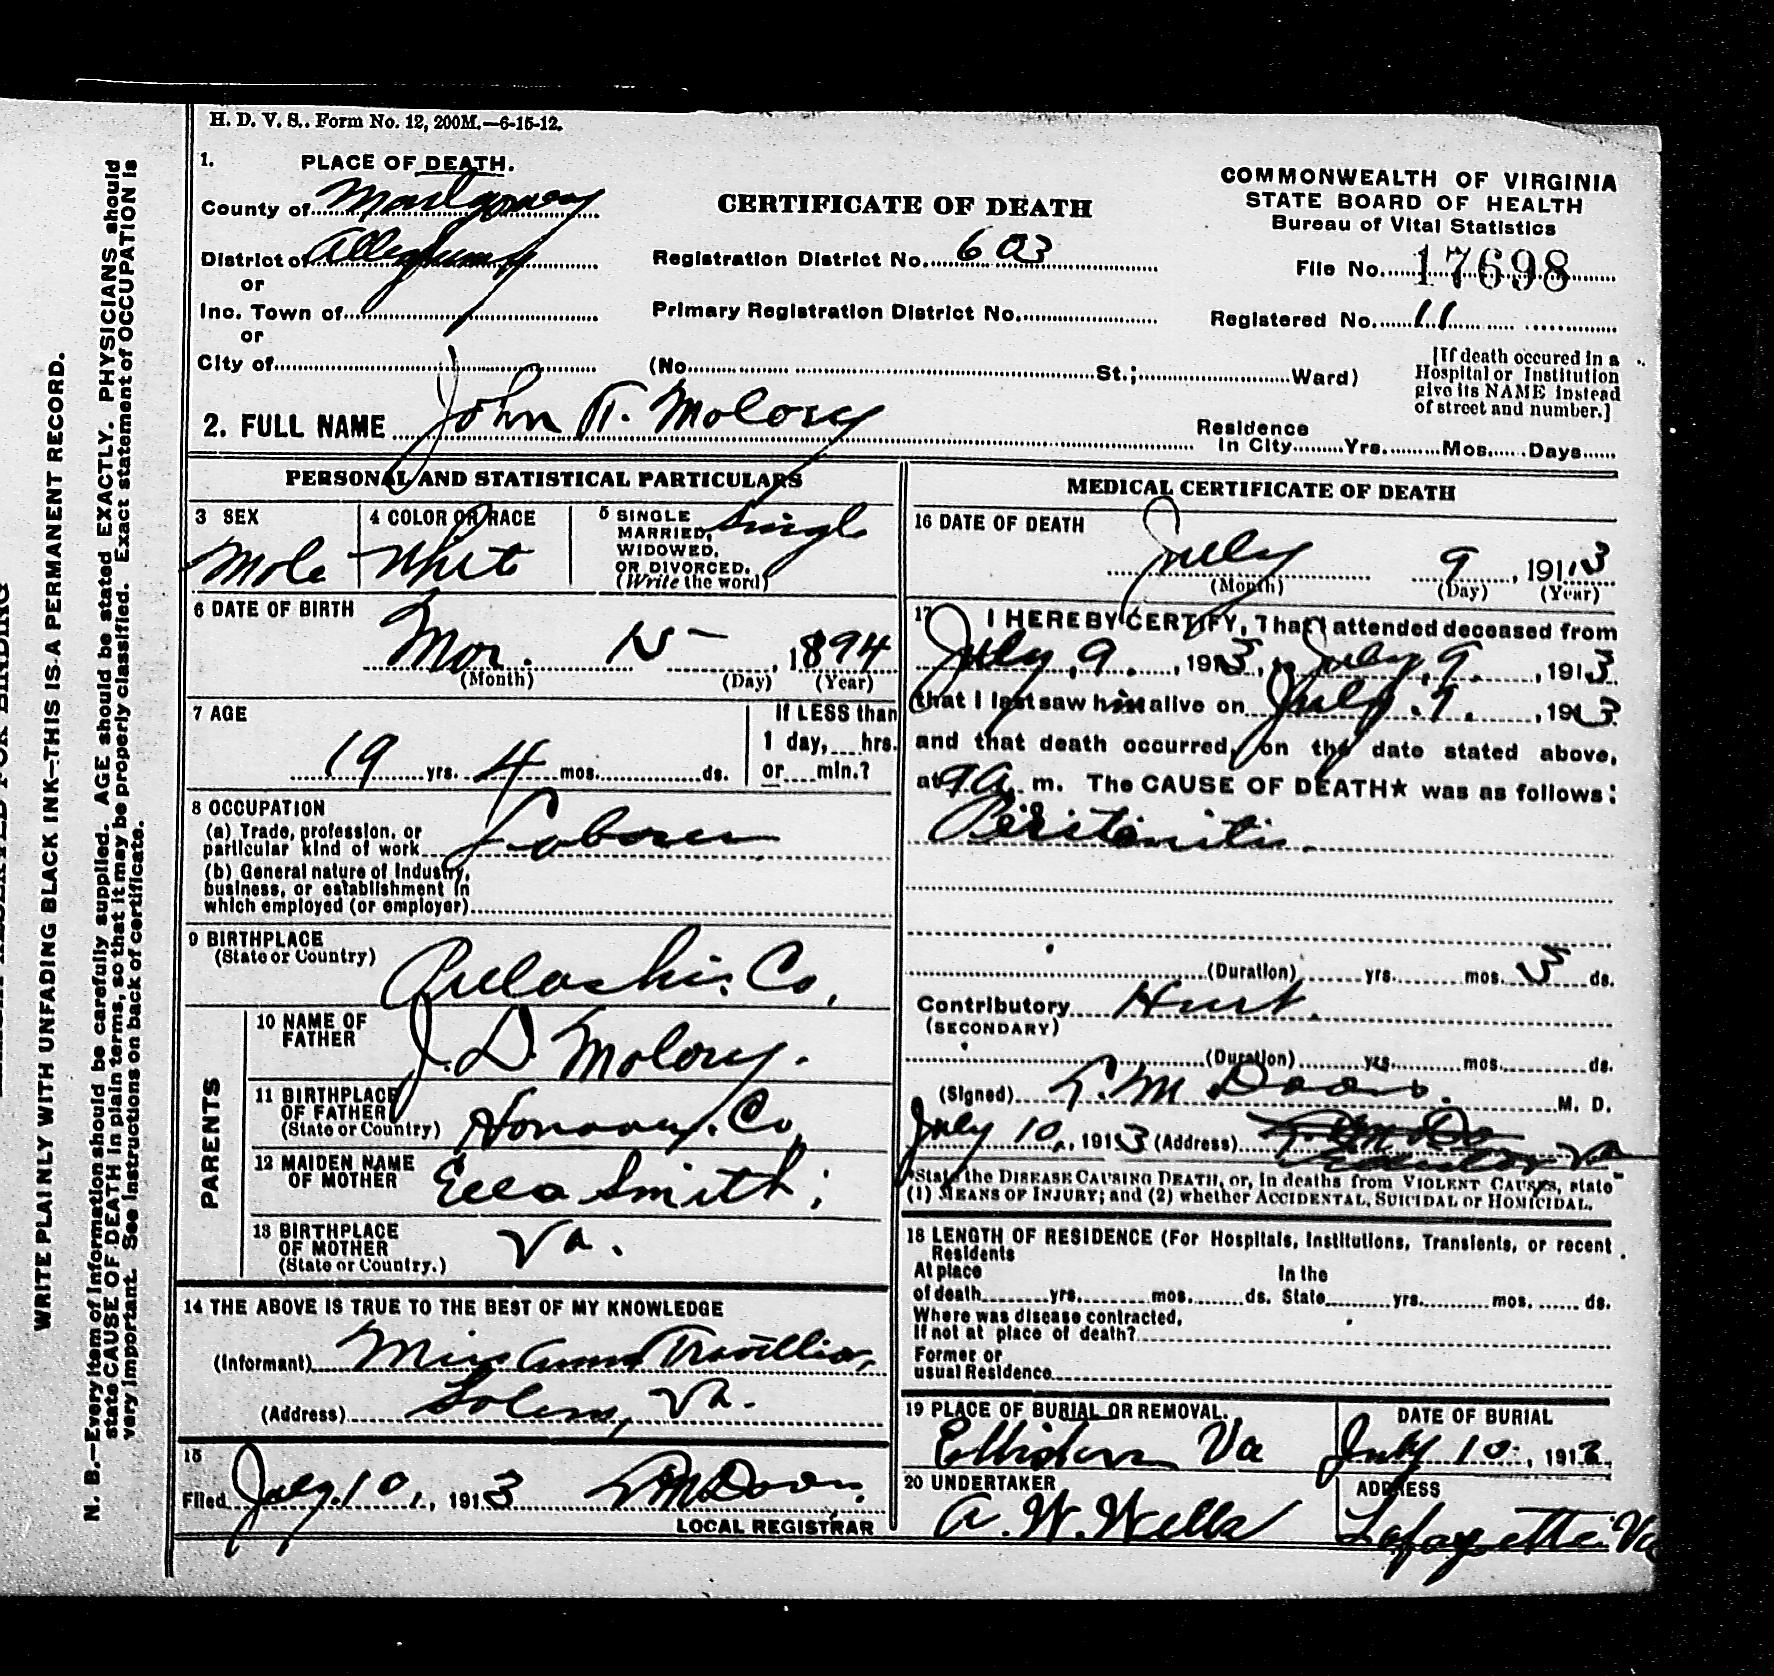 H. D. V. S.. Form No. 12, 200M.—6-15-12.
1. PLACE OF DEATH.
County of Montgomery
District of Alleghany
or
Inc. Town of
or
City of
CERTIFICATE OF DEATH
Registration District No. 603
Primary Registration District No.
(No. St.; Ward)
COMMONWEALTH OF VIRGINIA
STATE BOARD OF HEALTH
Bureau of Vital Statistics
File No. 17698
Registered No. 11
[If death occured in a
Hospital or Institution
give its NAME instead
of street and number.]
2. FULL NAME John T. Molory
Residence
In City Yrs. Mos. Days
PERSONAL AND STATISTICAL PARTICULARS
3 SEX
Male
4 COLOR OR RACE
Whit
5 SINGLE
MARRIED,
WIDOWED,
OR DIVORCED.
(Write the word)
Singl
6 DATE OF BIRTH
Mar. 15 , 1894
(Month) (Day) (Year)
7 AGE
19 yrs. 4 mos. ds.
If LESS than
1 day, hrs.
or min.?
8 OCCUPATION
(a) Trade, profession, or
particular kind of work Laborer
(b) General nature of Industry,
business, or establishment in
which employed (or employer)
9 BIRTHPLACE
(State or Country)
Pulaski. Co,
PARENTS
10 NAME OF
FATHER
J. D. Molory.
11 BIRTHPLACE
OF FATHER
(State or Country)
Co
12 MAIDEN NAME
OF MOTHER
Ella Smith;
13 BIRTHPLACE
OF MOTHER
(State or Country.)
Va.
14 THE ABOVE IS TRUE TO THE BEST OF MY KNOWLEDGE
(Informant) Miss
(Address) Salem, Va.
15
Filed July 10, 1913
LOCAL REGISTRAR
MEDICAL CERTIFICATE OF DEATH
16 DATE OF DEATH
July 9, 1913
(Month) (Day) (Year)
17 I HEREBY CERTIFY, That I attended deceased from
July, 9. , 1913, to July, 9. , 1913
that I last saw him alive on July. 9. , 1913
and that death occurred, on the date stated above,
at 9 A. m. The CAUSE OF DEATH★ was as follows:
Peritonitis.
(Duration) yrs. mos. 3 ds.
Contributory Hurt.
(SECONDARY)
(Duration) yrs. mos. ds.
(Signed) M. D.
July 10, 1913 (Address) Va
*State the DISEASE CAUSING DEATH, or, in deaths from VIOLENT CAUSES, state
(1) MEANS OF INJURY; and (2) whether ACCIDENTAL, SUICIDAL or HOMICIDAL.
18 LENGTH OF RESIDENCE (For Hospitals, Institutions, Transients, or recent
Residents
At place In the
of death yrs. mos. ds. State yrs. mos. ds.
Where was disease contracted,
If not at place of death?
Former or
usual Residence
19 PLACE OF BURIAL OR REMOVAL.
Elliston Va
DATE OF BURIAL
July 10, 1913.
20 UNDERTAKER
A. W. Wells
ADDRESS
Lafayette. Va
WRITE PLAINLY WITH UNFADING BLACK INK—THIS IS A PERMANENT RECORD.
N. B.—Every item of Information should be carefully supplied. AGE should be stated EXACTLY. PHYSICIANS should
state CAUSE OF DEATH in plain terms, so that it may be properly classified. Exact statement of OCCUPATION is
very important. See Instructions on back of certificate.